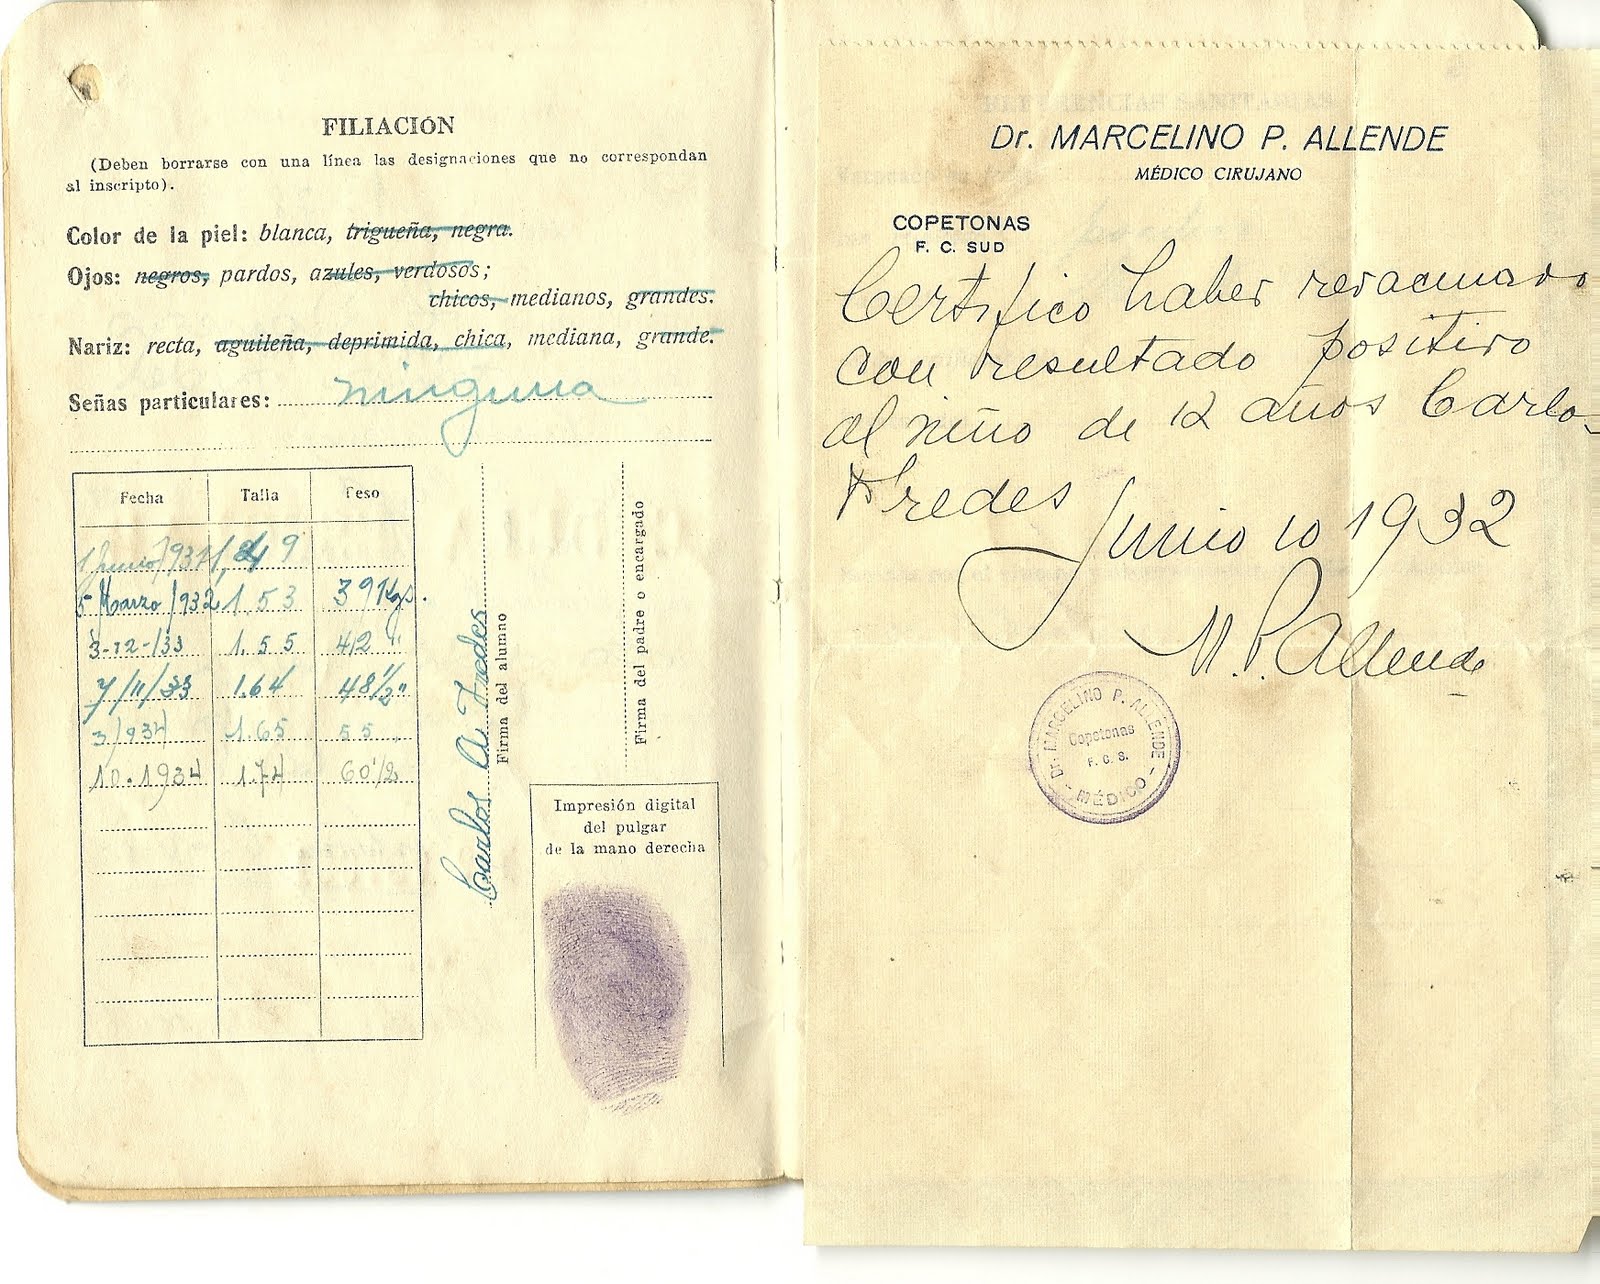 FILIACIÓN
(Deben borrarse con una línea las designaciones que no correspondan
al inscripto).
Color de la piel: blanca, trigueña, negra.
Ojos: negros, pardos, azules, verdosos;
chicos, medianos, grandes.
Nariz: recta, aguileña, deprimida, chica, mediana, grande.
Señas particulares: ninguna
Fecha Talla Peso
1 Junio/931 1,49
5 Marzo/932 1.53 39 Kgs.
3-12-/33 1.55 42 "
7/11/33 1.64 48½ "
3/934 1.65 55
10-1934 1.74 60½
Carlos A. Fredes
Firma del alumno
Firma del padre o encargado
Impresión digital
del pulgar
de la mano derecha
Dr. MARCELINO P. ALLENDE
MÉDICO CIRUJANO
COPETONAS
F. C. SUD
Certifico haber revacunado
con resultado positivo
al niño de 12 años Carlos
Fredes
Junio 10 1932
M. P. Allende
Dr. MARCELINO P. ALLENDE
Copetonas
F. C. S.
- MÉDICO -